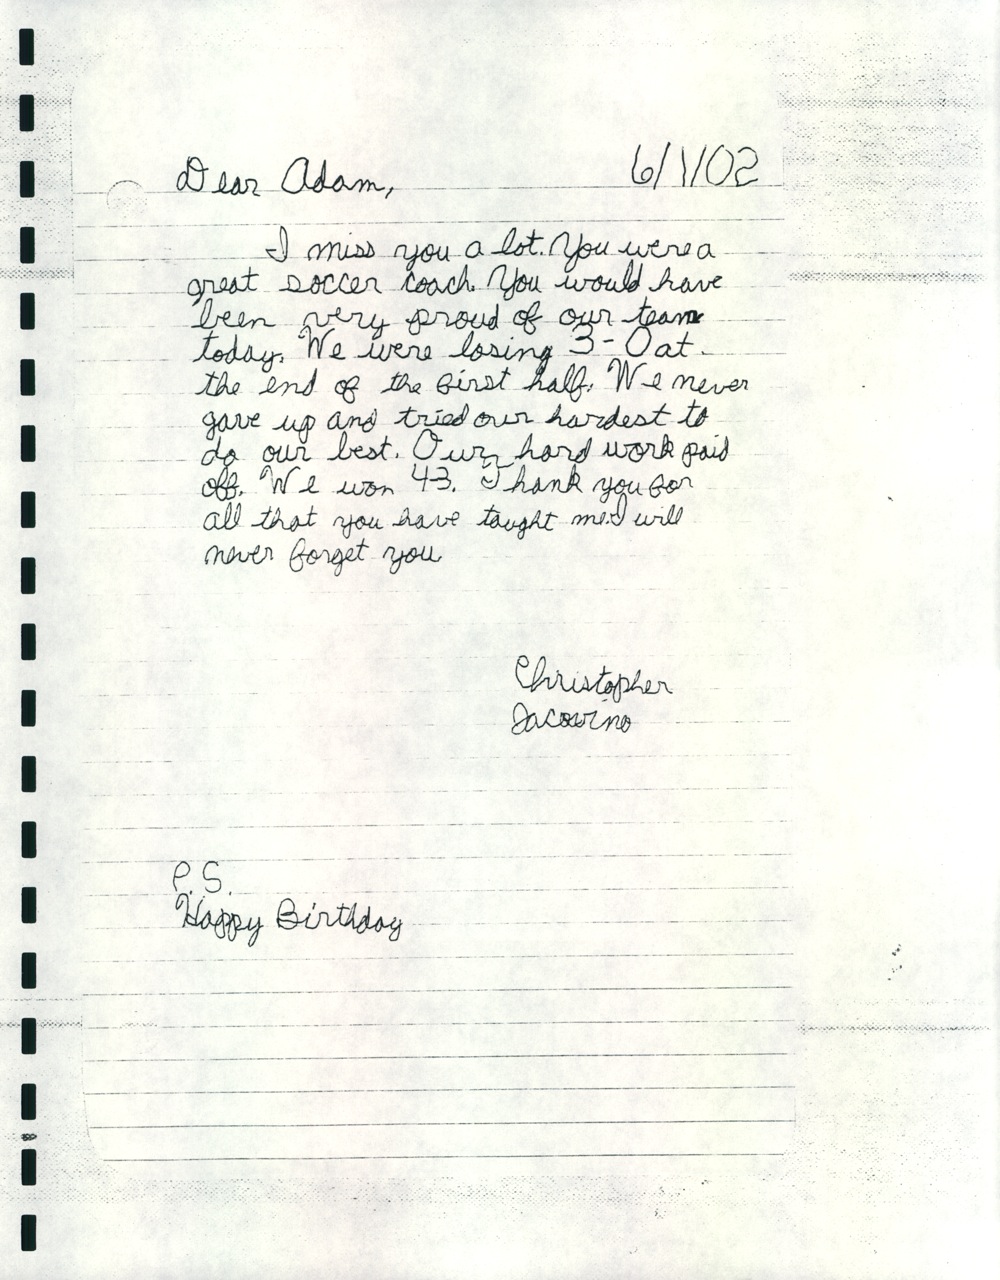 Dear Adam, 6/1/02
I miss you a lot. You were a
great soccer coach. You would have
been very proud of our team
today. We were losing 3-0 at
the end of the first half. We never
gave up and tried our hardest to
do our best. Our hard work paid
off. We won 43. Thank you for
all that you have taught me. I will
never forget you
Christopher
Iacovino
P.S.
Happy Birthday